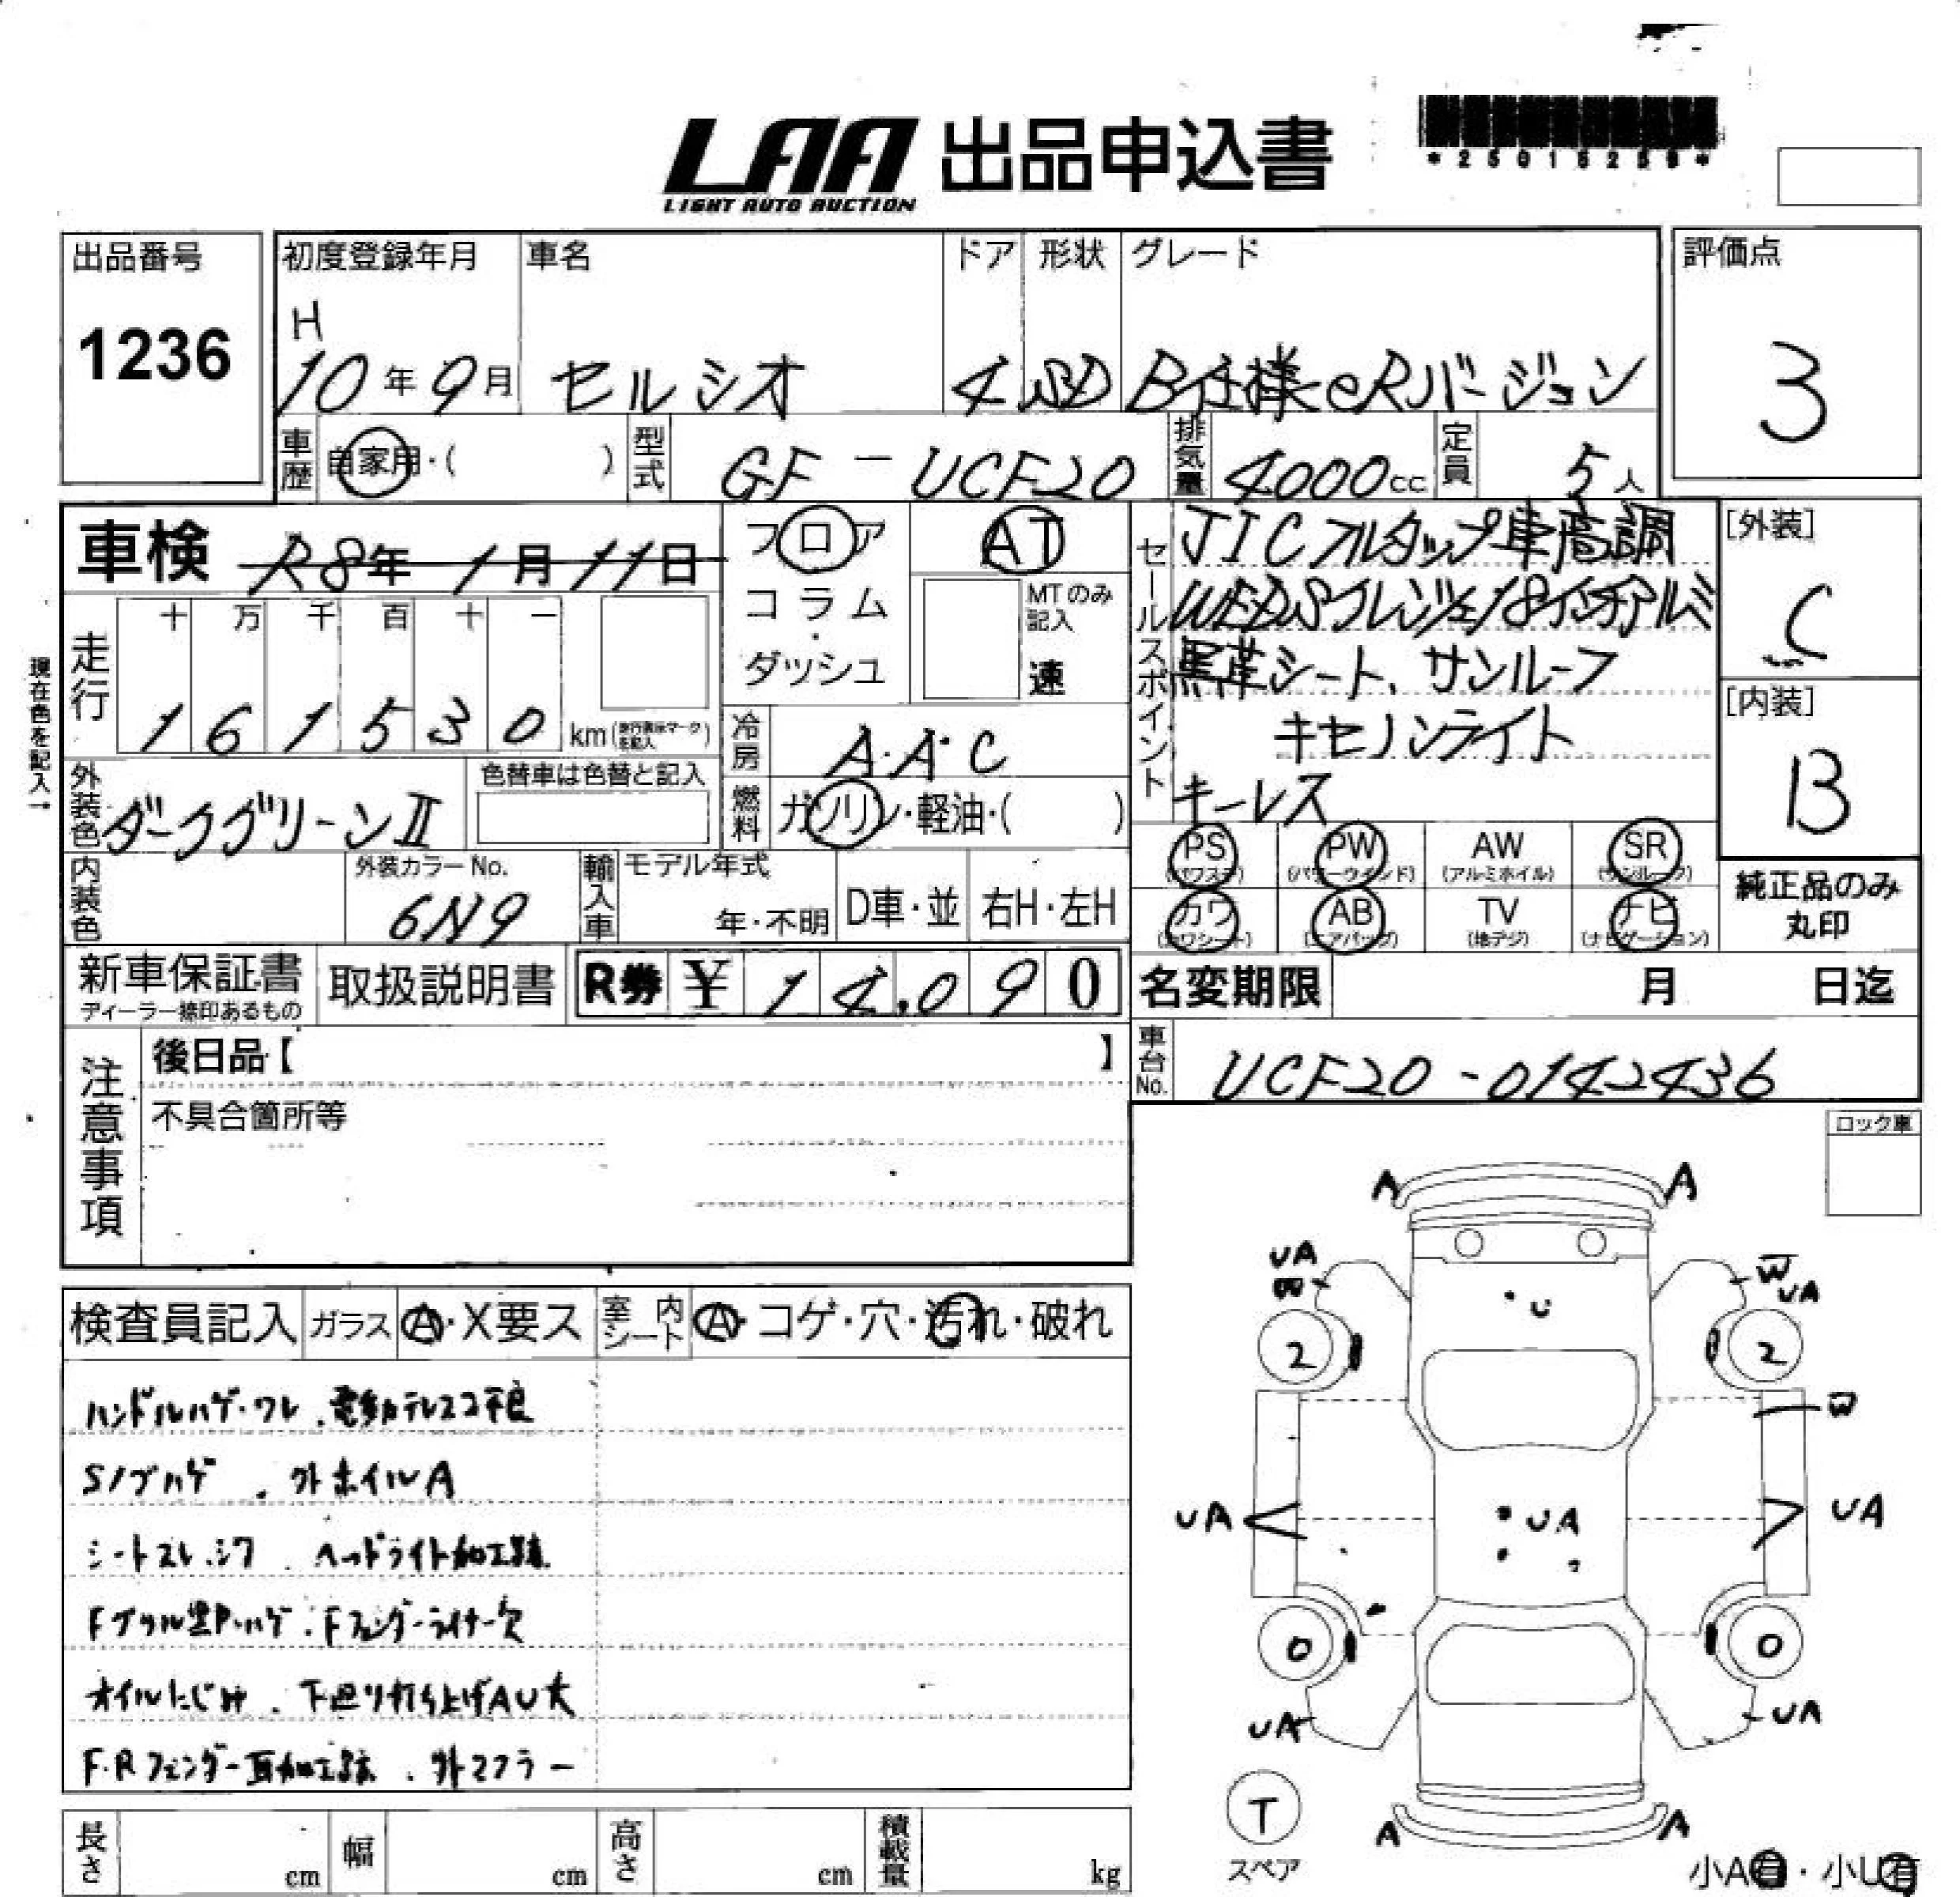 *25015258*
LAA 出品申込書
LIGHT AUTO AUCTION
出品番号
1236
初度登録年月
H
10年9月
車名
セルシオ
ドア
4
形状
SD
グレード
B仕様eRバージョン
評価点
3
車歴
自家用・( )
型式
GF-UCF20
排気量
4000cc
定員
5人
車検 R8年1月11日
フロア
コラム
・
ダッシュ
AT
MTのみ
記入
速
セールスポイント
JICフルタップ車高調
WEDSクレンツェ18インチアルミ
黒革シート、サンルーフ
キセノンライト
キーレス
[外装]
C
[内装]
B
現在色を記入→
走行
十 万 千 百 十 一
1 6 1 5 3 0 km
冷房
A・A・C
外装色
ダークグリーンⅡ
色替車は色替と記入
燃料
ガソリン・軽油・( )
内装色
外装カラーNo.
6N9
輸入車
モデル年式
年・不明
D車・並
右H・左H
PS
(パワステ)
PW
(パワーウインド)
AW
(アルミホイル)
SR
(サンルーフ)
カワ
(カワシート)
AB
(エアバッグ)
TV
(地デジ)
ナビ
(ナビゲーション)
純正品のみ
丸印
新車保証書
ディーラー捺印あるもの
取扱説明書
R券 ¥ 14,090
名変期限 月 日迄
注意事項
後日品【 】
不具合箇所等
車台No.
UCF20-0142436
ロック車
検査員記入
ガラス
A・X要ス
室内シート
A・コゲ・穴・汚れ・破れ
ハンドルハゲ・ワレ、電動テレスコ不良
Sノブハゲ、外ホイルA
シートスレ、シワ、ヘッドライト加工跡
Fグリル塗P・ハゲ、Fフェンダーライナー欠
オイルにじみ、下廻り打ち上げAU大
F・Rフェンダー耳加工跡、外マフラー
A A
UA
W
W
UA
U
2 2
W
UA UA UA
0 0
UA UA
T
スペア
A A
小A有・小U有
長さ cm
幅 cm
高さ cm
積載量 kg